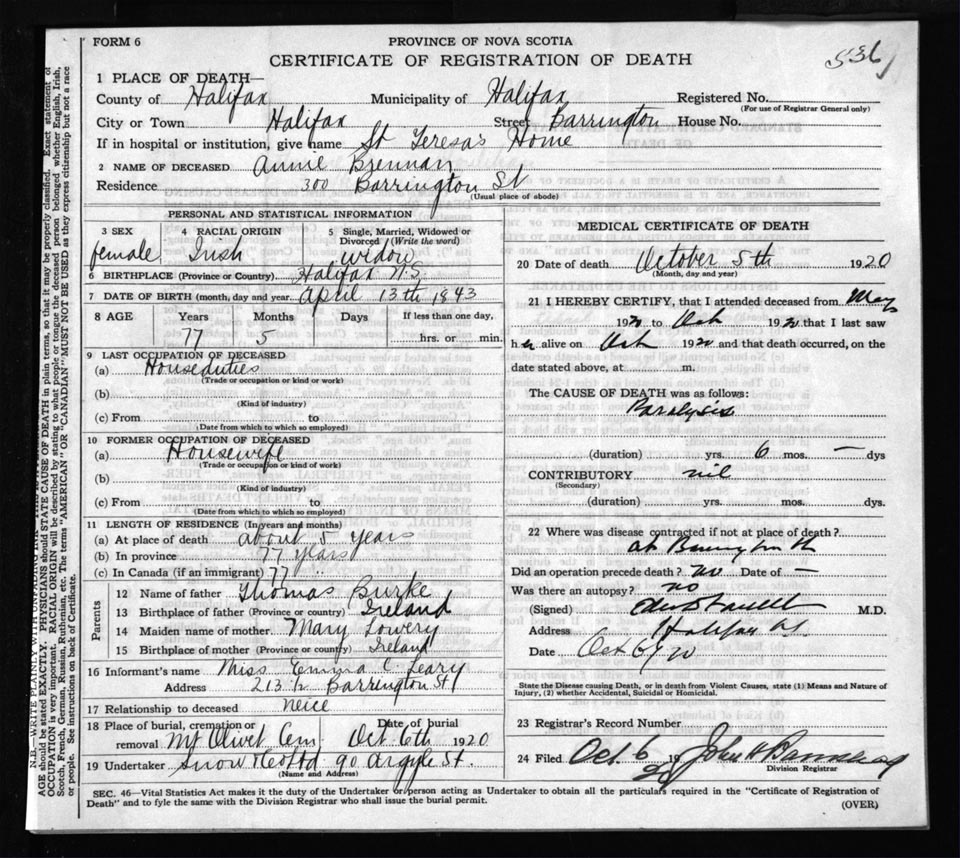 FORM 6
PROVINCE OF NOVA SCOTIA
CERTIFICATE OF REGISTRATION OF DEATH
536
1 PLACE OF DEATH—
County of Halifax Municipality of Halifax Registered No.
(For use of Registrar General only)
City or Town Halifax Street Barrington House No.
If in hospital or institution, give name St Teresa's Home
2 NAME OF DECEASED Annie Brennan
Residence 300 Barrington St
(Usual place of abode)
PERSONAL AND STATISTICAL INFORMATION
3 SEX 4 RACIAL ORIGIN 5 Single, Married, Widowed or
Divorced (Write the word)
female Irish widow
6 BIRTHPLACE (Province or Country) Halifax N.S.
7 DATE OF BIRTH (month, day and year April 13th 1843
8 AGE Years Months Days If less than one day,
77 5 hrs. or min.
9 LAST OCCUPATION OF DECEASED
(a) Houseduties
(Trade or occupation or kind or work)
(b)
(Kind of industry)
(c) From to
(Date from which to which so employed)
10 FORMER OCCUPATION OF DECEASED
(a) Housewife
(Trade or occupation or kind of work)
(b)
(Kind of industry)
(c) From to
(Date from which to which so employed)
11 LENGTH OF RESIDENCE (In years and months)
(a) At place of death about 5 years
(b) In province 77 years
(c) In Canada (if an immigrant) 77
Parents
12 Name of father Thomas Burke
13 Birthplace of father (Province or country) Ireland
14 Maiden name of mother Mary Lowery
15 Birthplace of mother (Province or country) Ireland
16 Informant's name Miss Emma C. Leary
Address 213 1/2 Barrington St
17 Relationship to deceased neice
18 Place of burial, cremation or Date of burial
removal Mt Olivet Cem Oct 6th 1920
19 Undertaker Snow & Co Ltd 90 Argyle St.
(Name and Address)
MEDICAL CERTIFICATE OF DEATH
20 Date of death October 5th 1920
(Month, day and year)
21 I HEREBY CERTIFY, that I attended deceased from May
1920 to Oct 1920 that I last saw
her alive on Oct 1920 and that death occurred, on the
date stated above, at m.
The CAUSE OF DEATH was as follows:
Paralysis
(duration) yrs. 6 mos. — dys
CONTRIBUTORY nil
(Secondary)
(duration) yrs. mos. dys.
22 Where was disease contracted if not at place of death?
at Barrington St
Did an operation precede death? no Date of —
Was there an autopsy? no
(Signed) M.D.
Address Halifax NS.
Date Oct 6/20
State the Disease causing Death, or in death from Violent Causes, state (1) Means and Nature of
Injury, (2) whether Accidental, Suicidal or Homicidal.
23 Registrar's Record Number
24 Filed Oct. 6 19 20 John
Division Registrar
SEC. 46—Vital Statistics Act makes it the duty of the Undertaker or person acting as Undertaker to obtain all the particulars required in the "Certificate of Registration of
Death" and to fyle the same with the Division Registrar who shall issue the burial permit.
(OVER)
N.B. WRITE PLAINLY WITH UNFADING INK
AGE should be stated EXACTLY. PHYSICIANS should STATE CAUSE OF DEATH in plain terms, so that it may be properly classified. Exact statement of
OCCUPATION is very important. RACIAL ORIGIN will be described by stating to what people or tongue the deceased person belonged whether English, Irish,
Scotch, French, German, Russian, Ruthenian, etc. The terms "AMERICAN" OR "CANADIAN" MUST NOT BE USED as they express citizenship but not a race
or people. See instructions on back of Certificate.